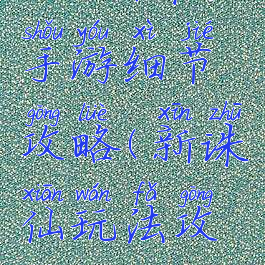 shǒu yóu xì jié
手游细节
gōng lüè xīn zhū
攻略(新诛
xiān wán fǎ gōng
仙玩法攻